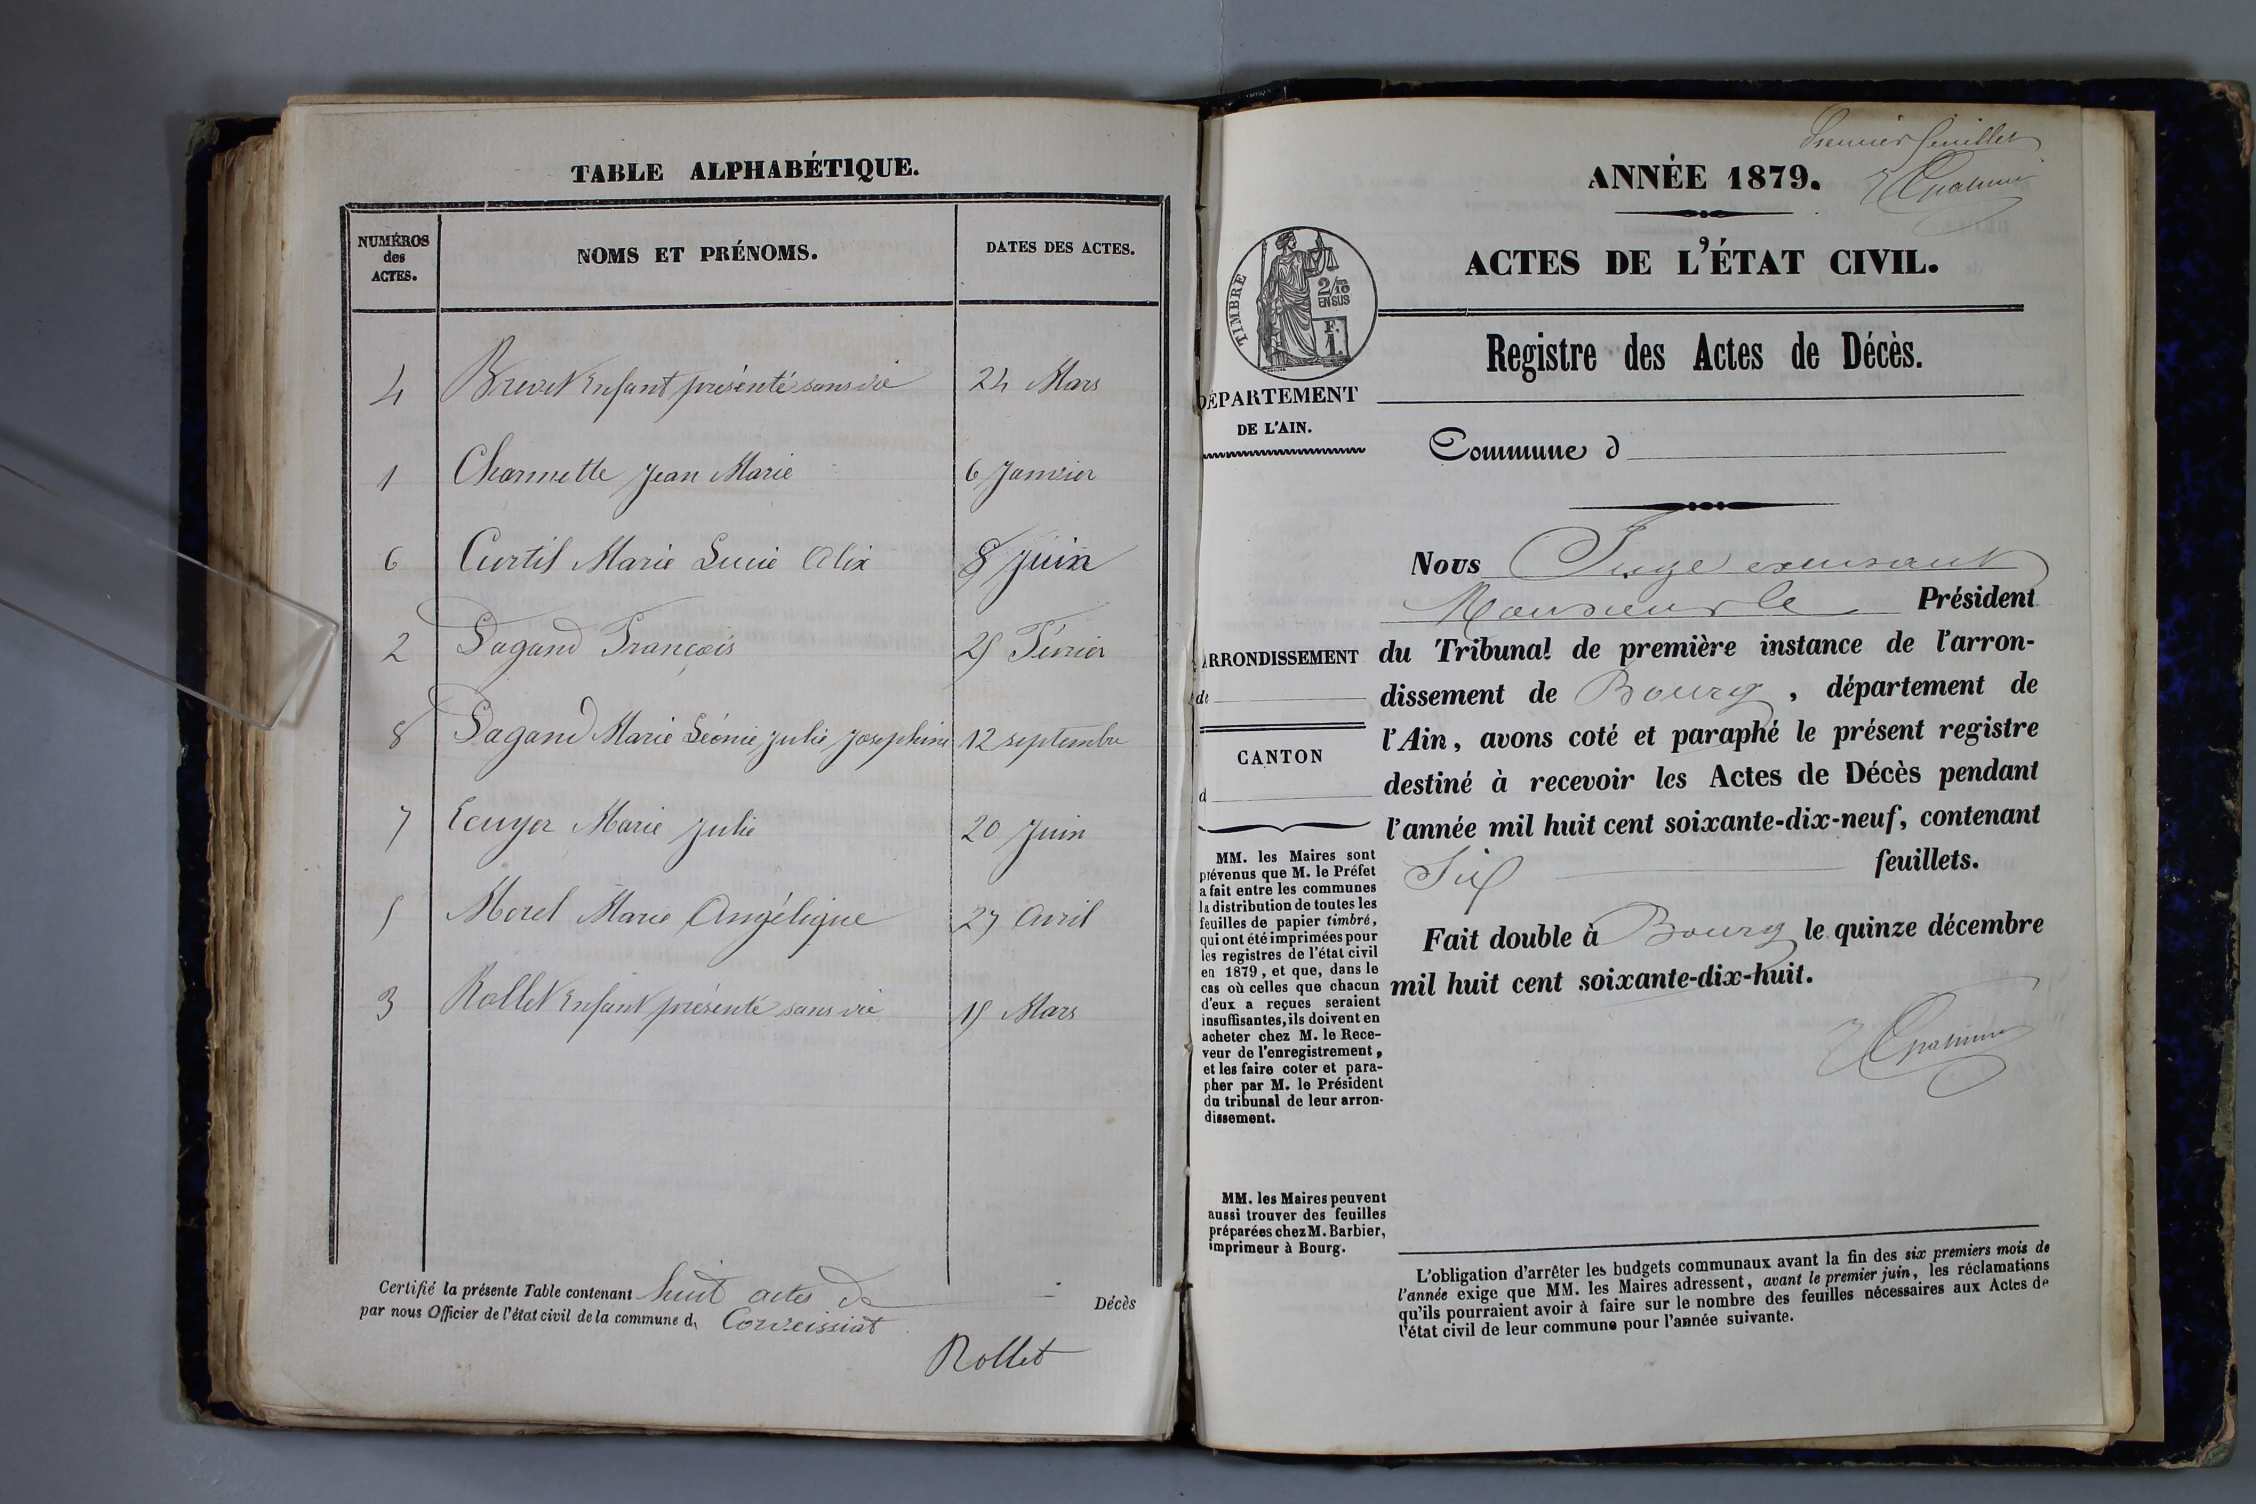 TABLE ALPHABÉTIQUE.
NUMÉROS
des
ACTES.
NOMS ET PRÉNOMS.
DATES DES ACTES.
4 Brevet Enfant présenté sans vie 24 Mars
1 Charmette Jean Marie 6 Janvier
6 Curtil Marie Lucie Alix 8 Juin
2 Dagand François 25 Février
8 Dagand Marie Léonie Julie Josephine 12 septembre
7 Ecuyer Marie Julie 20 Juin
5 Morel Marie Angélique 27 Avril
3 Rollet Enfant présenté sans vie 15 Mars
Certifié la présente Table contenant huit actes de Décès
par nous Officier de l'état civil de la commune d Corveissiat
Rollet
Premier feuillet
ANNÉE 1879.
ACTES DE L'ÉTAT CIVIL.
TIMBRE
2/10
EN SUS
F.
1.
Registre des Actes de Décès.
DÉPARTEMENT
DE L'AIN.
Commune d
Nous Juge excusant
Monsieur le Président
ARRONDISSEMENT
de
CANTON
d
du Tribunal de première instance de l'arron-
dissement de Bourg, département de
l'Ain, avons coté et paraphé le présent registre
destiné à recevoir les Actes de Décès pendant
l'année mil huit cent soixante-dix-neuf, contenant
Six feuillets.
Fait double à Bourg le quinze décembre
mil huit cent soixante-dix-huit.
MM. les Maires sont
prévenus que M. le Préfet
a fait entre les communes
la distribution de toutes les
feuilles de papier timbré,
qui ont été imprimées pour
les registres de l'état civil
en 1879, et que, dans le
cas où celles que chacun
d'eux a reçues seraient
insuffisantes, ils doivent en
acheter chez M. le Rece-
veur de l'enregistrement,
et les faire coter et para-
pher par M. le Président
du tribunal de leur arron-
dissement.
MM. les Maires peuvent
aussi trouver des feuilles
préparées chez M. Barbier,
imprimeur à Bourg.
L'obligation d'arrêter les budgets communaux avant la fin des six premiers mois de
l'année exige que MM. les Maires adressent, avant le premier juin, les réclamations
qu'ils pourraient avoir à faire sur le nombre des feuilles nécessaires aux Actes de
l'état civil de leur commune pour l'année suivante.